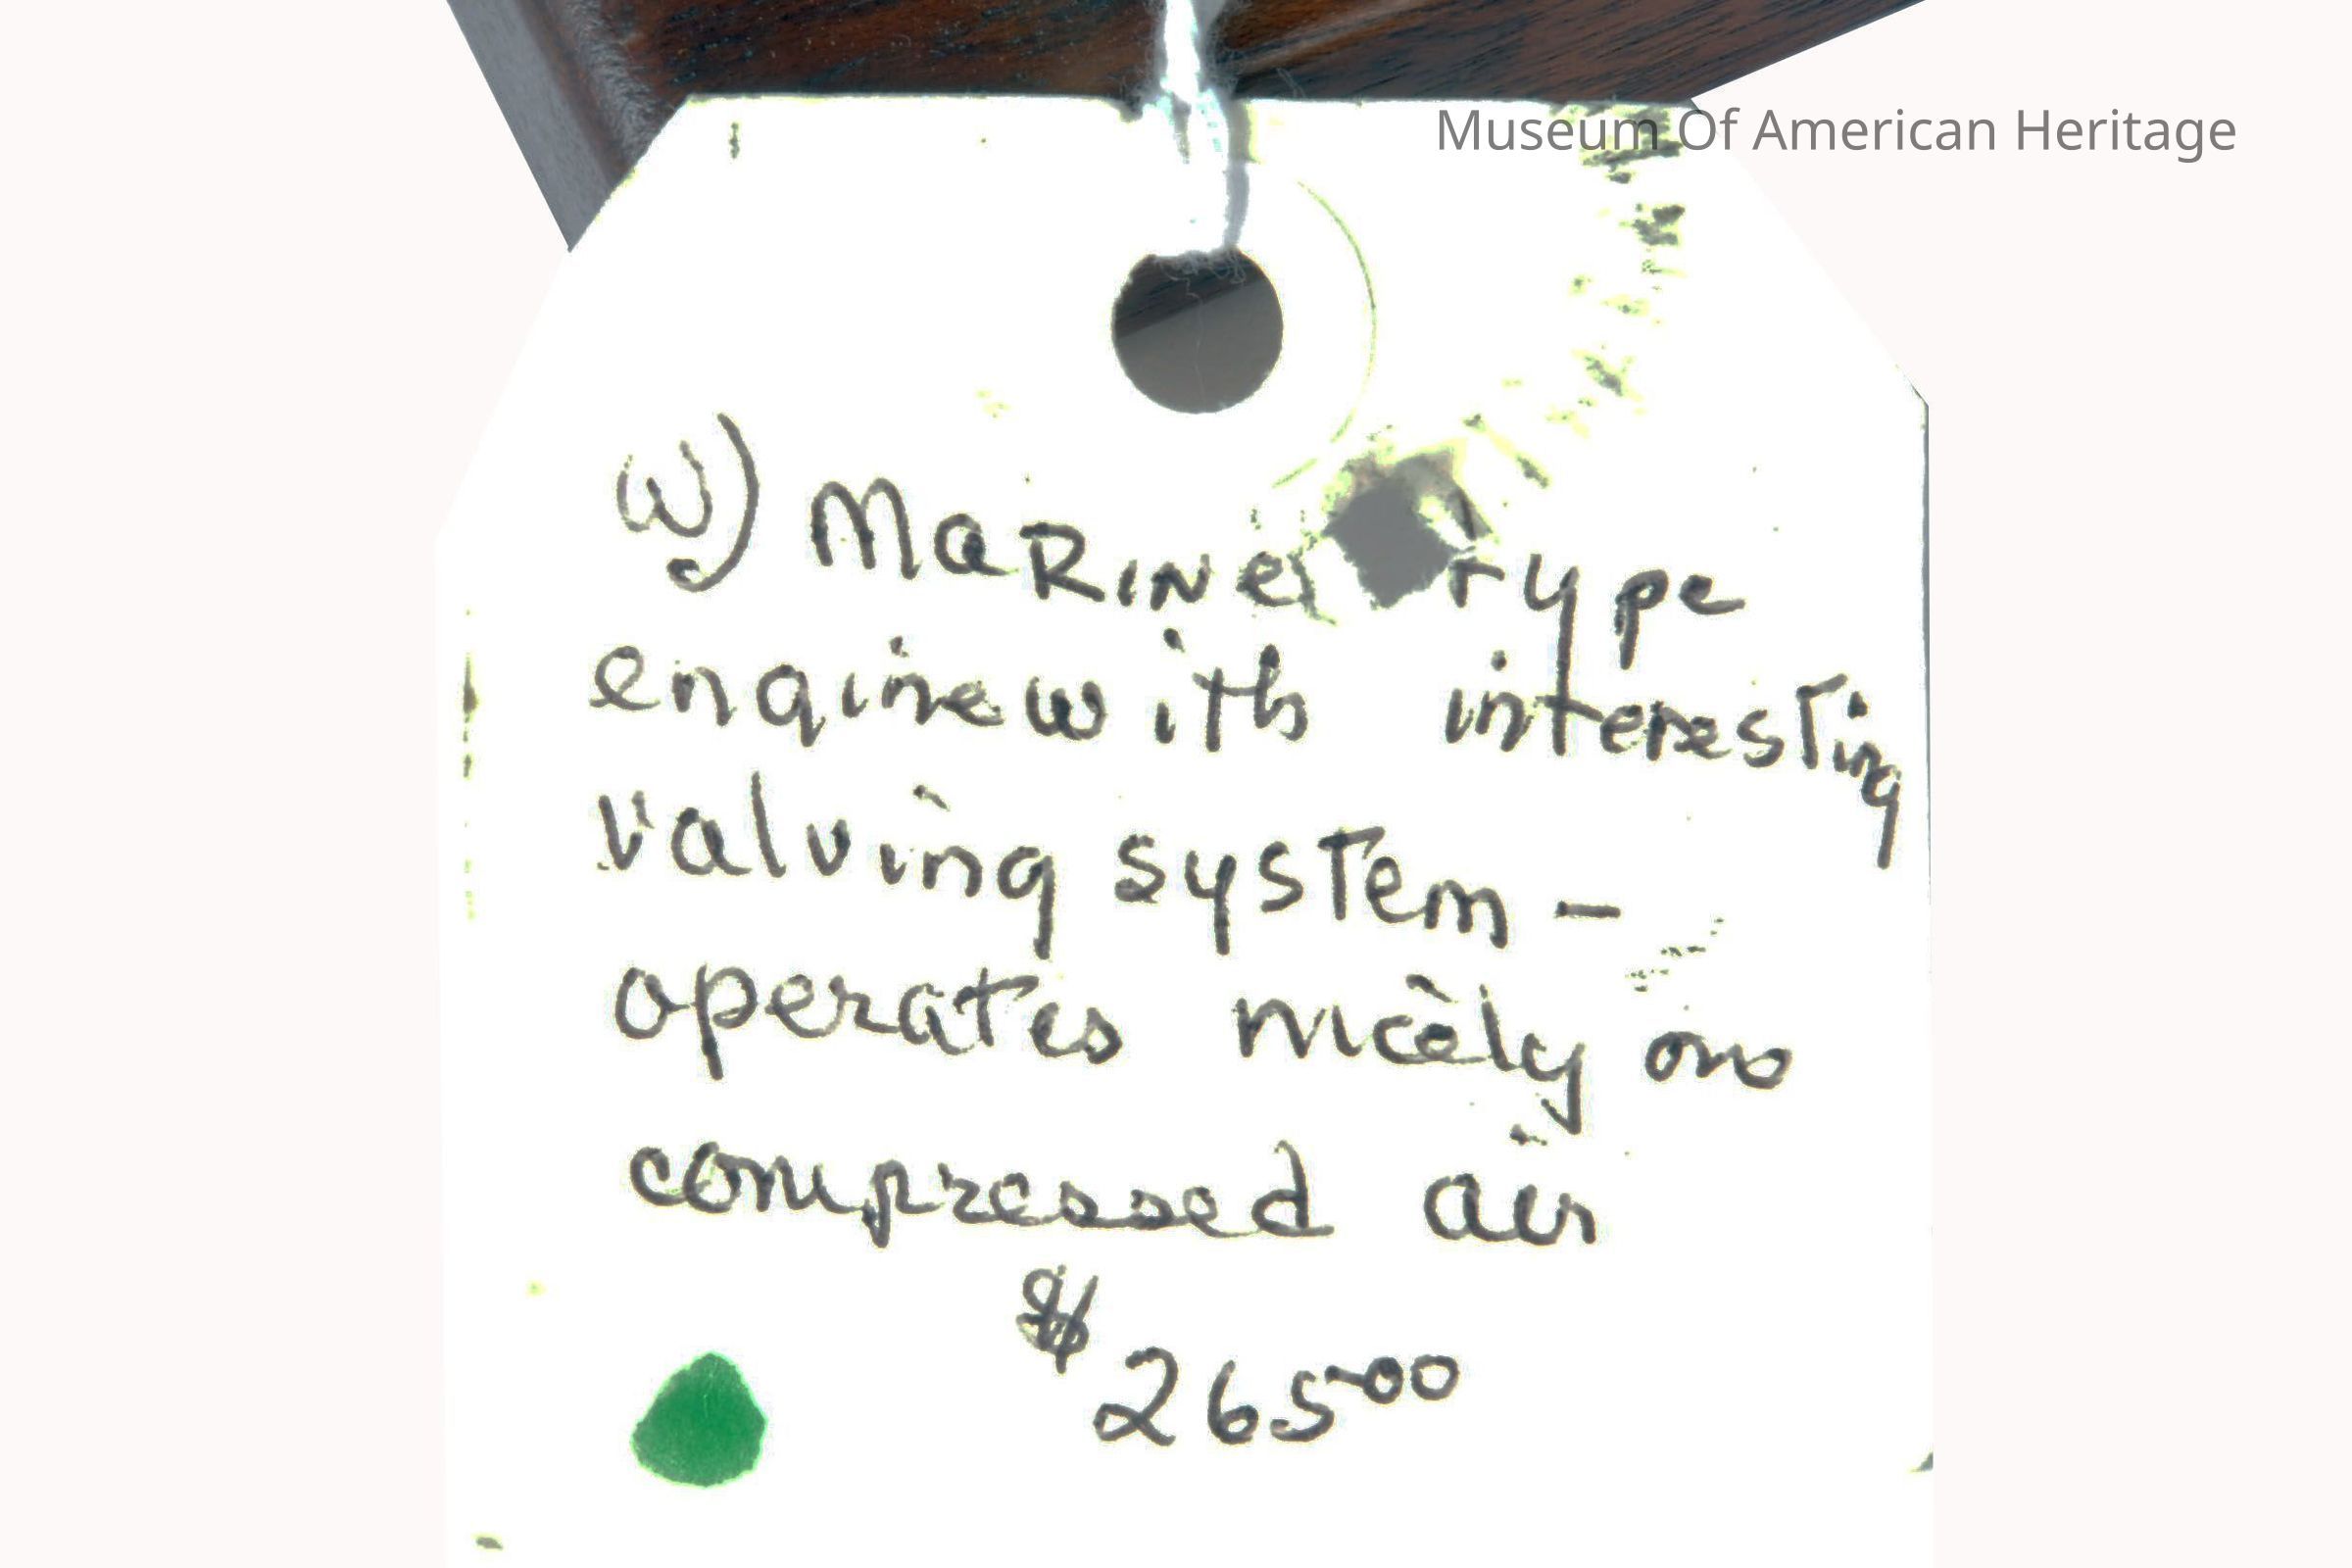 Museum Of American Heritage
W) MaRINe Type
engine with interesting
valving system -
operates nicely on
compressed air
$ 265 00